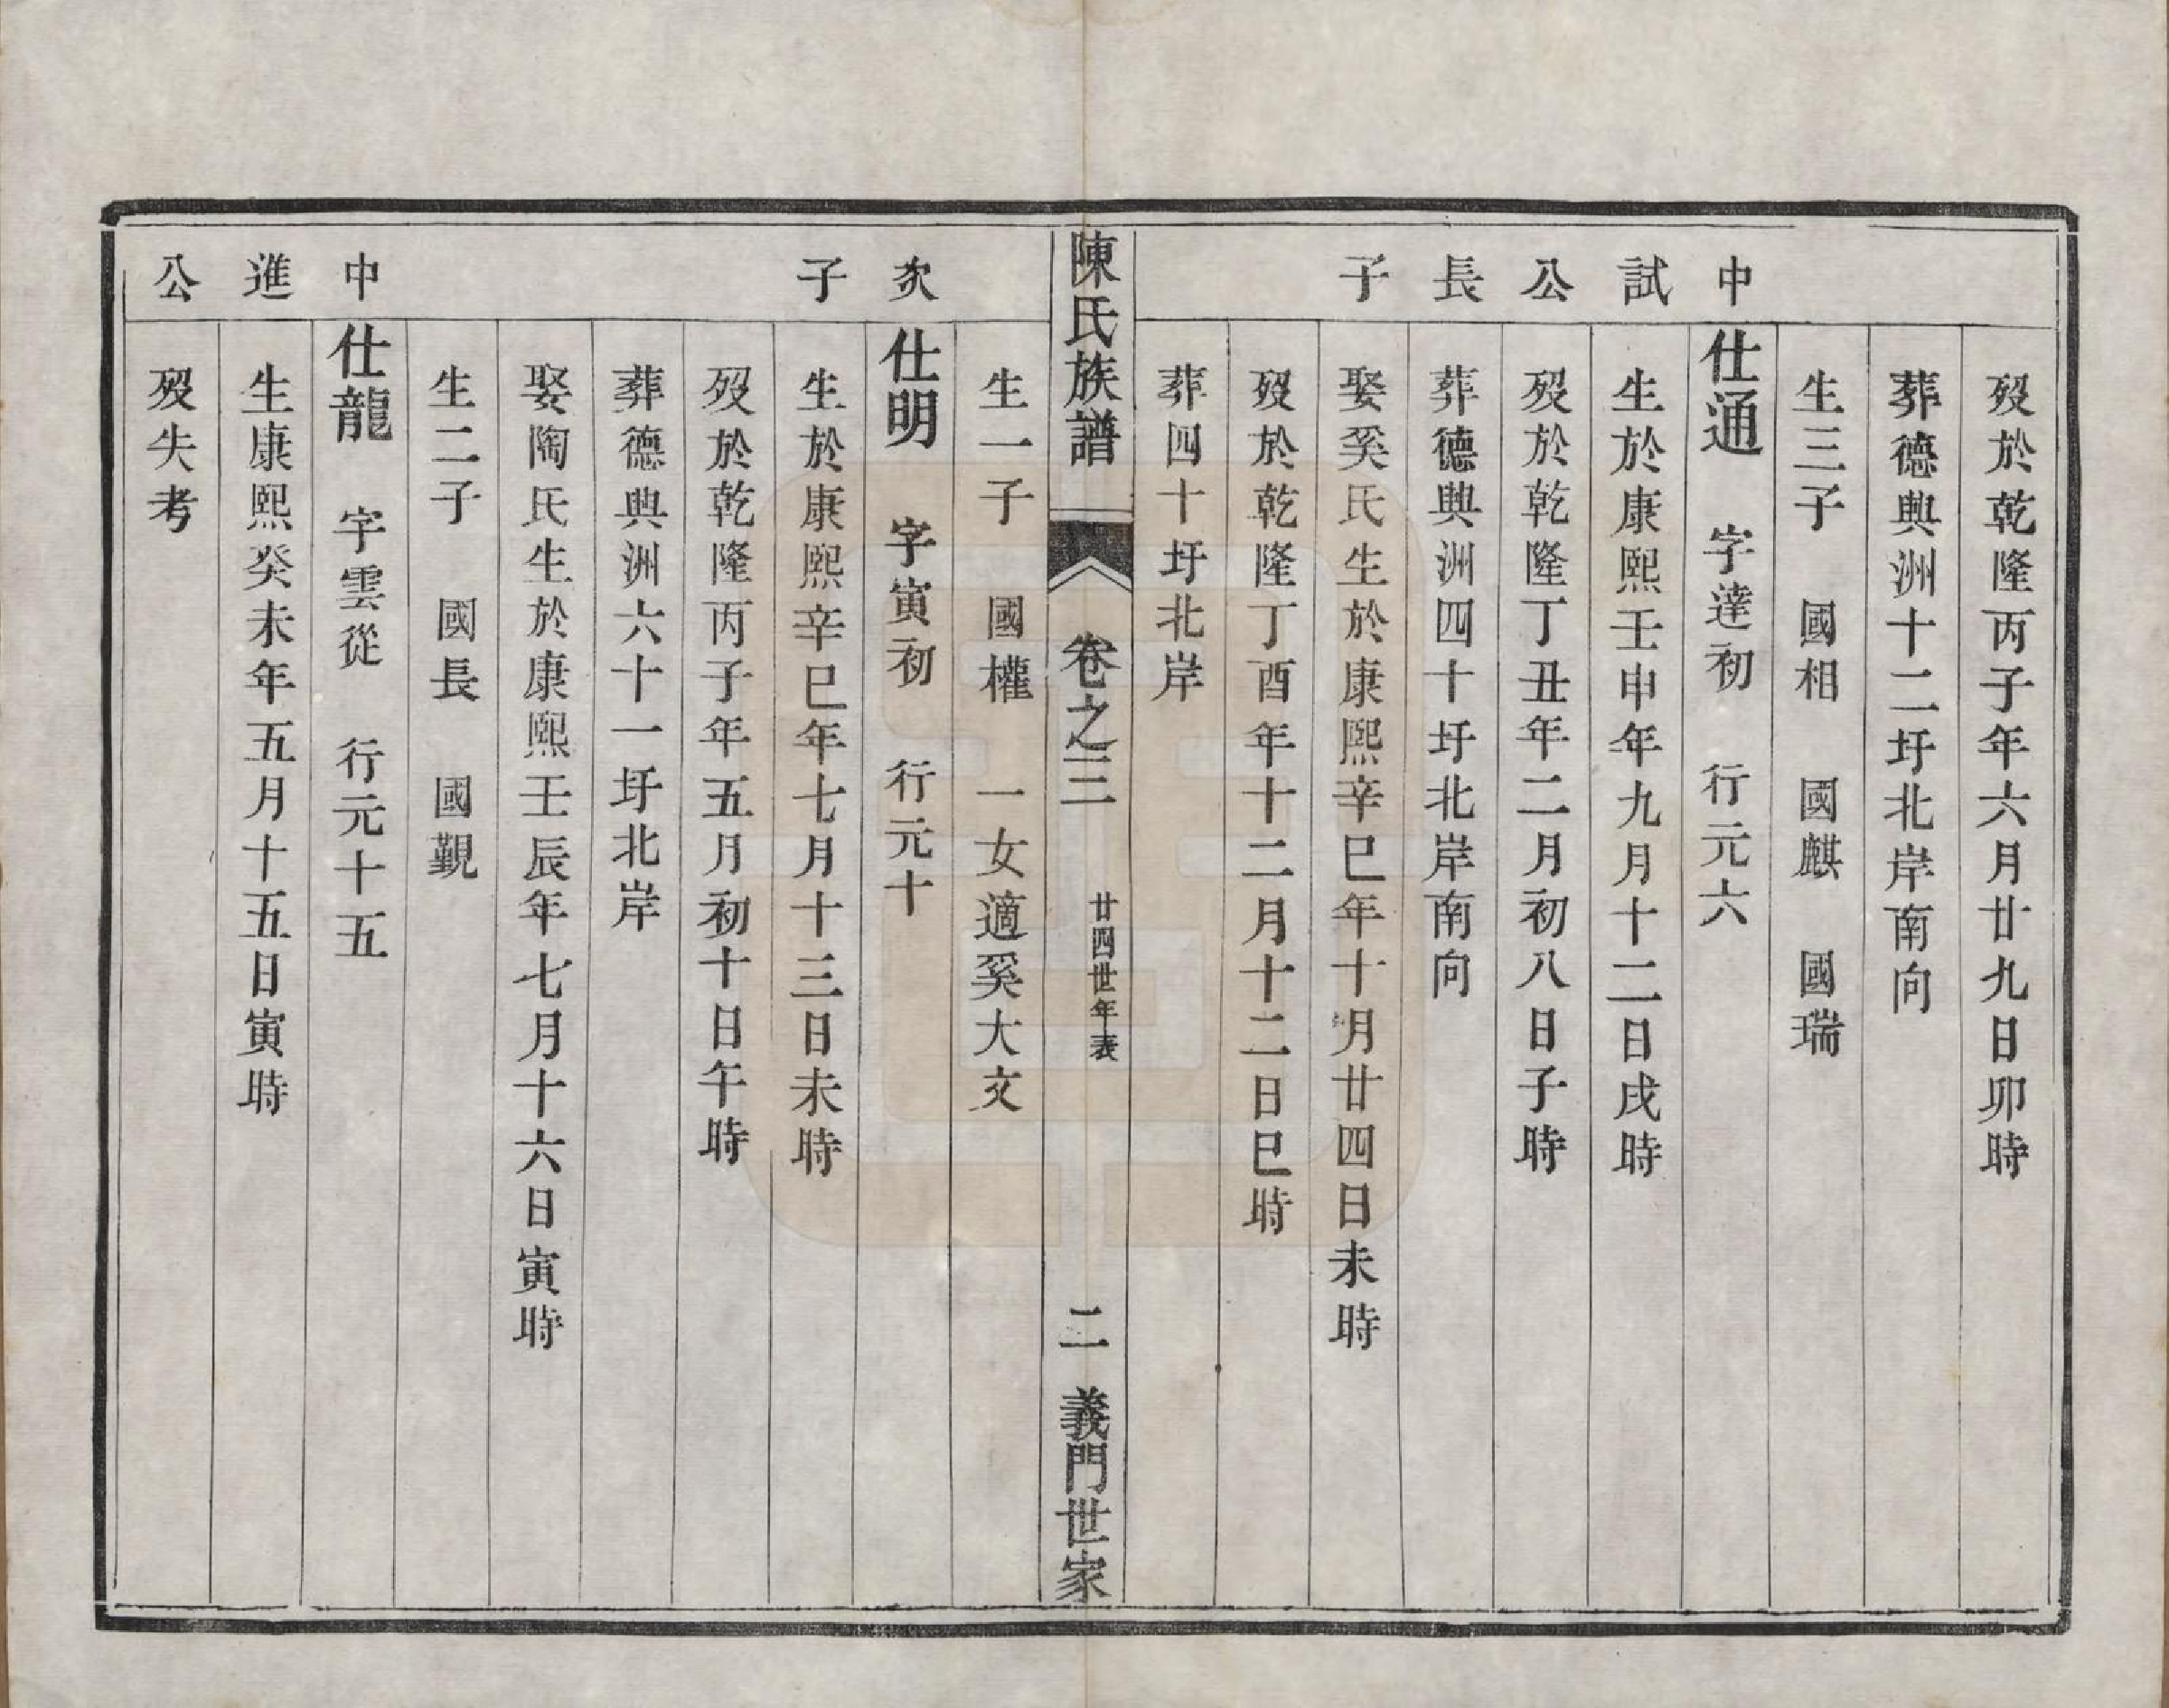 歿於乾隆丙子年六月廿九日卯時
葬德興洲十二圩北岸南向
生三子 國相 國麒 國瑞
中試公長子
仕通 字達初 行元六
生於康熙壬申年九月十二日戌時
歿於乾隆丁丑年二月初八日子時
葬德興洲四十圩北岸南向
娶奚氏生於康熙辛巳年十月廿四日未時
歿於乾隆丁酉年十二月十二日巳時
葬四十圩北岸
陳氏族譜 卷之三 廿四世年表 二 義門世家
生一子 國權 一女適奚大文
次子
仕明 字寅初 行元十
生於康熙辛巳年七月十三日未時
歿於乾隆丙子年五月初十日午時
葬德興洲六十一圩北岸
娶陶氏生於康熙壬辰年七月十六日寅時
生二子 國長 國觀
中進公
仕龍 字雲從 行元十五
生康熙癸未年五月十五日寅時
歿失考